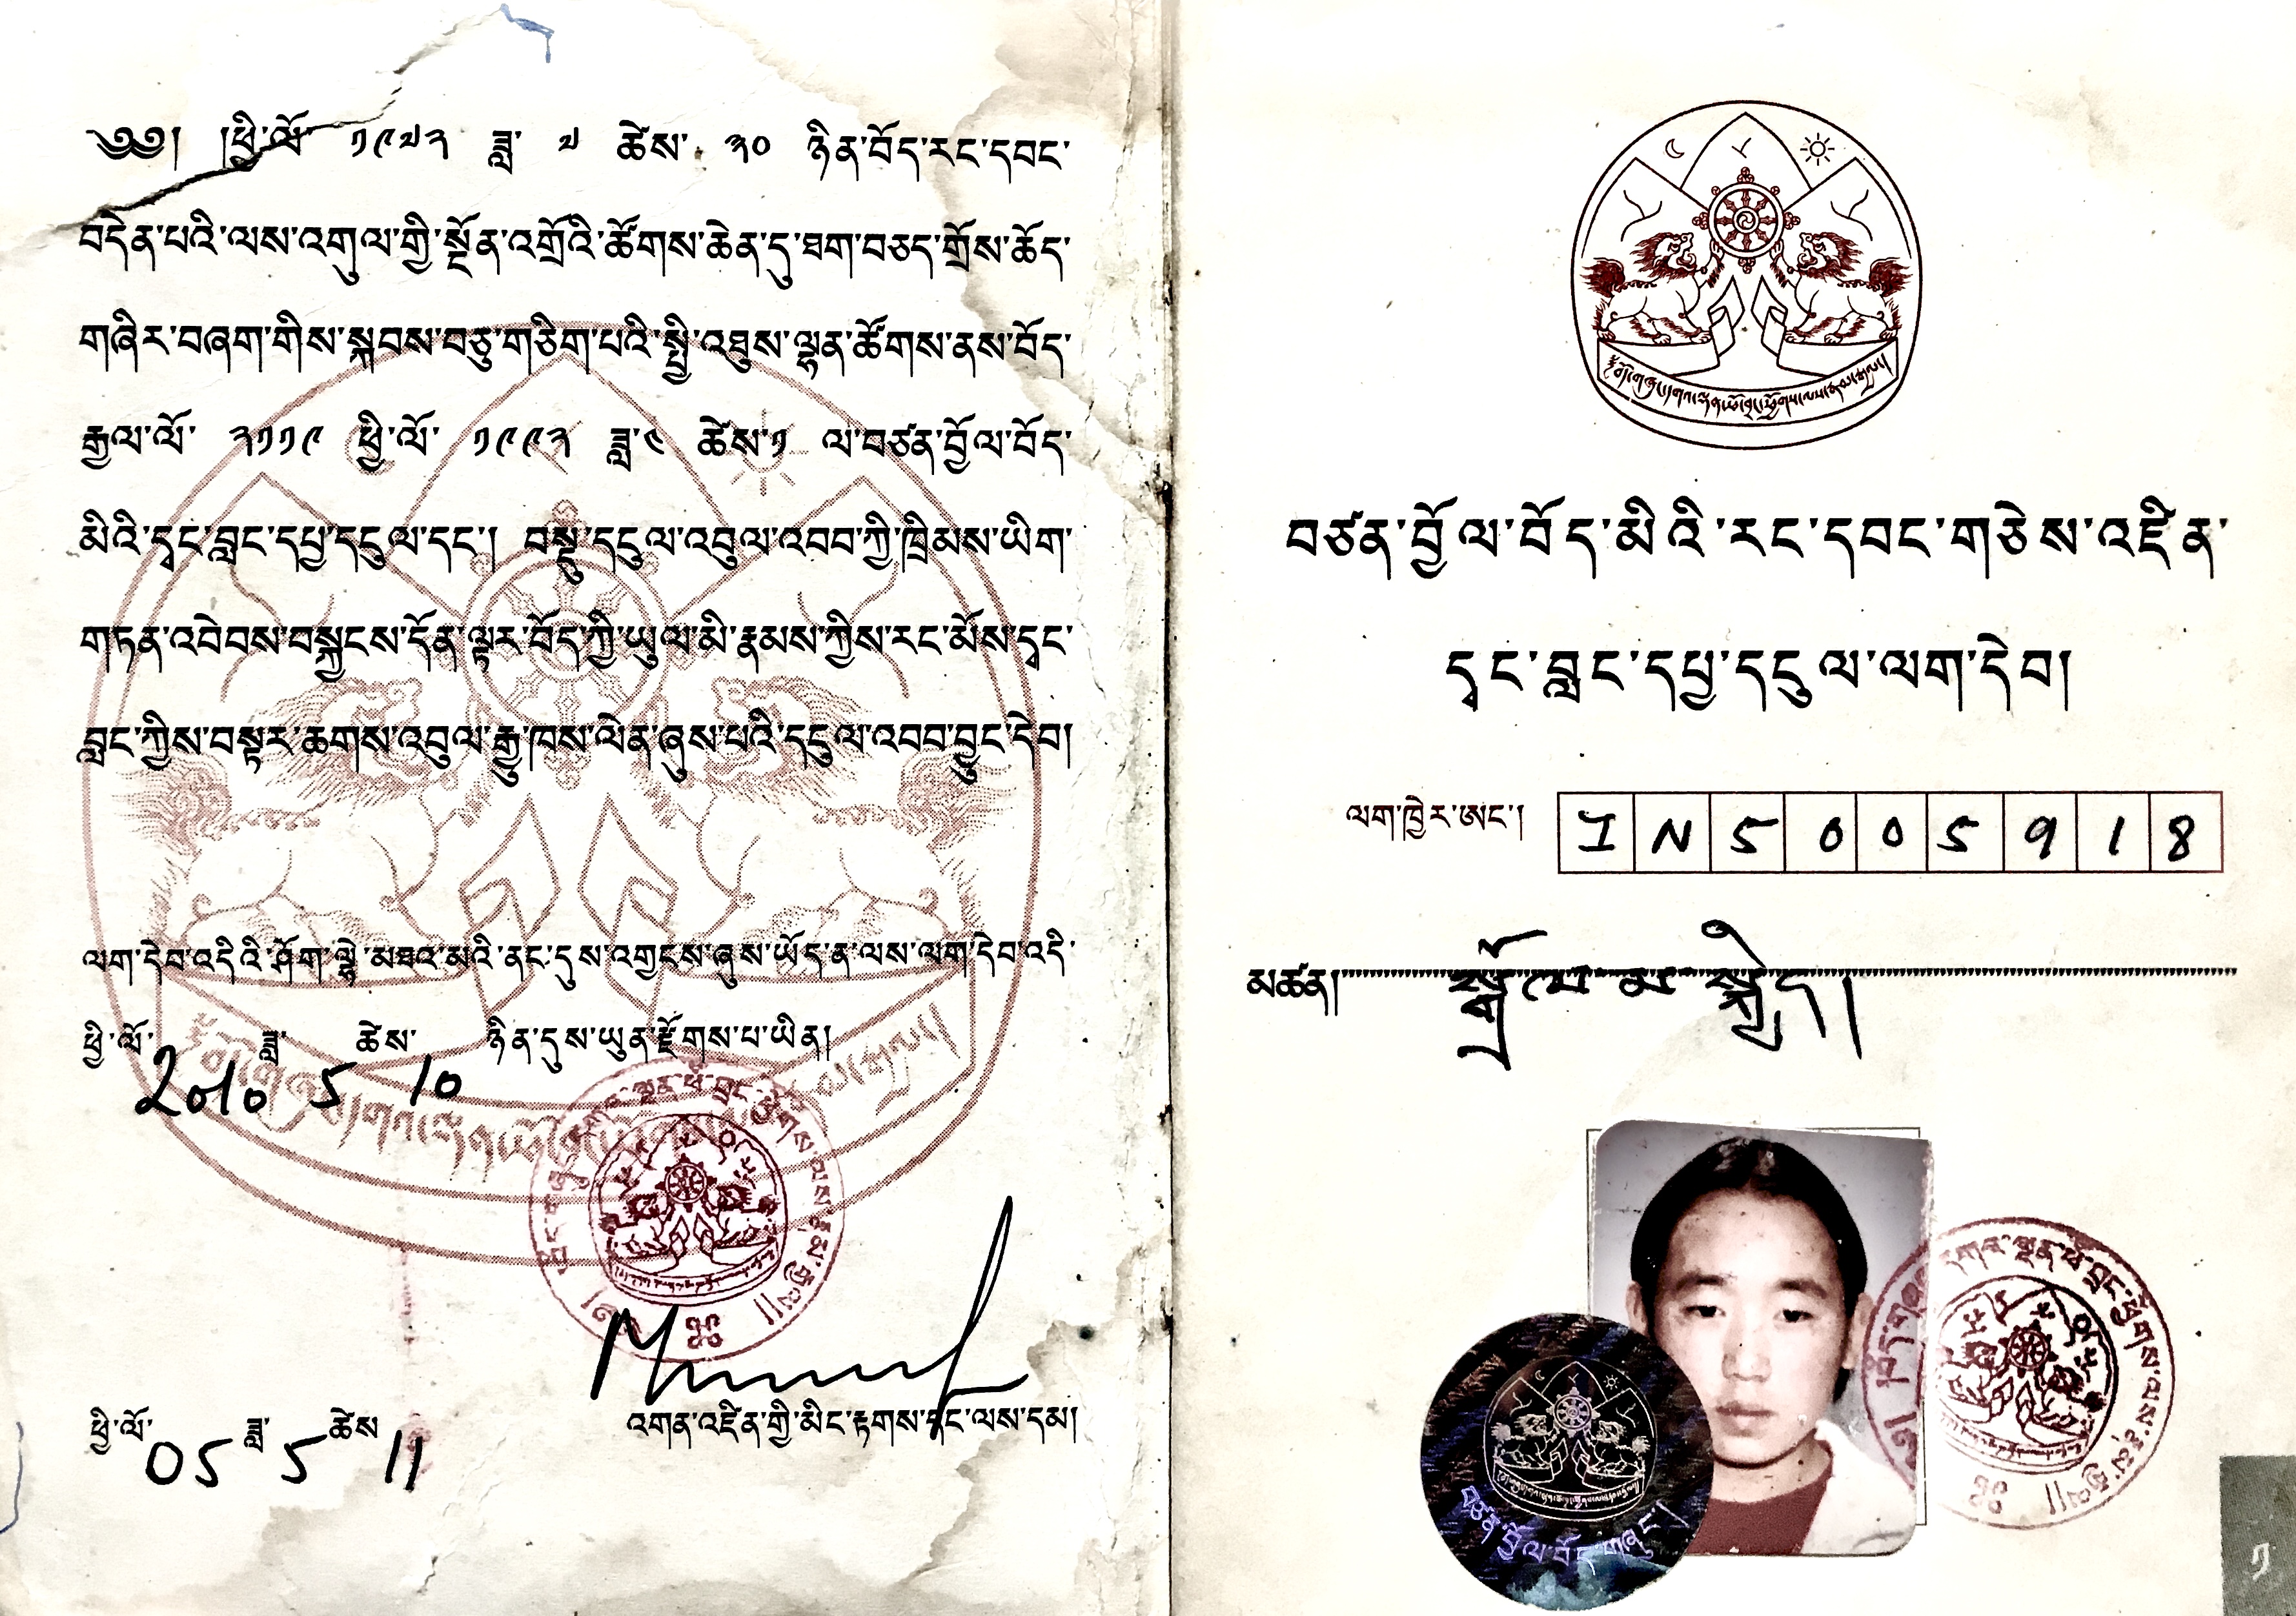 ༄༅། །ཕྱི་ལོ་ ༡༩༧༢ ཟླ་ ༧ ཚེས་ ༣༠ ཉིན་བོད་རང་དབང་
བདེན་པའི་ལས་འགུལ་གྱི་སྔོན་འགྲོའི་ཚོགས་ཆེན་དུ་ཐག་བཅད་གྲོས་ཆོད་
གཞིར་བཞག་གིས་སྐབས་བཅུ་གཅིག་པའི་སྤྱི་འཐུས་ལྷན་ཚོགས་ནས་བོད་
རྒྱལ་ལོ་ ༢༡༡༩ ཕྱི་ལོ་ ༡༩༩༢ ཟླ་༤ ཚེས་༡ ལ་བཙན་བྱོལ་བོད་
མིའི་དྭང་བླང་དཔྱ་དངུལ་དང་། བསྡུ་དངུལ་འབུལ་འབབ་ཀྱི་ཁྲིམས་ཡིག་
གཏན་འབེབས་བསྐྱངས་དོན་ལྟར་བོད་ཀྱི་ཡུལ་མི་རྣམས་ཀྱིས་རང་མོས་དྭང་
བླང་ཀྱིས་བསྟར་ཆགས་འབུལ་རྒྱུ་ཁས་ལེན་ཞུས་པའི་དངུལ་འབབ་བྱུང་དེབ།
ལག་དེབ་འདིའི་ཤོག་ལྷེ་མཐའ་མའི་ནང་དུས་འགྱངས་ཞུས་ཡོད་ན་ལས་ལག་དེབ་འདི་
ཕྱི་ལོ་ 2010 ཟླ་ 5 ཚེས་ 10 ཉིན་དུས་ཡུན་རྫོགས་པ་ཡིན།
འགན་འཛིན་གྱི་མིང་རྟགས་དང་ལས་དམ།
ཕྱི་ལོ་ 05 ཟླ་ 5 ཚེས 11
བཙན་བྱོལ་བོད་མིའི་རང་དབང་གཅེས་འཛིན་
དྭང་བླང་དཔྱ་དངུལ་ལག་དེབ།
ལག་ཁྱེར་ཨང་། IN5005918
མཚན། སྒྲོལ་མ་སྐྱིད།
བཙན་བྱོལ་བོད་གཞུང་།
༡